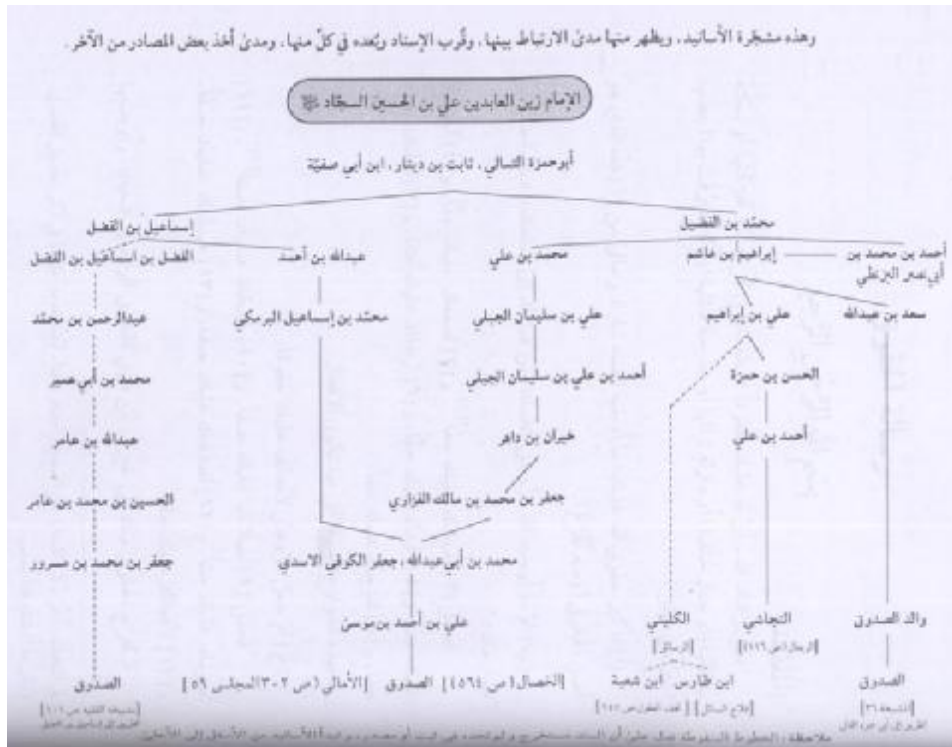 وهذه مشجّرة الأسانيد، ويظهر منها مدىٰ الارتباط بينها، وقُرب الإسناد وبُعده في كلّ منها، ومدىٰ أخذ بعض المصادر من الآخر.
الإمام زين العابدين علي بن الحسين السجّاد
أبو حمزة الثمالي، ثابت بن دينار، ابن أبي صفيّة
محمّد بن الفضيل
إسماعيل بن الفضل
أحمد بن محمد بن أبي نصر البزنطي
إبراهيم بن هاشم
محمد بن علي
عبدالله بن أحمد
الفضل بن اسماعيل بن الفضل
سعد بن عبدالله
علي بن إبراهيم
علي بن سليمان الجبلي
محمّد بن إسماعيل البرمكي
عبدالرحمن بن محمّد
الحسن بن حمزة
أحمد بن علي بن سليمان الجبلي
محمد بن أبي عمير
أحمد بن علي
خيران بن داهر
عبدالله بن عامر
جعفر بن محمد بن مالك الفزاري
الحسين بن محمد بن عامر
محمد بن أبي عبدالله، جعفر الكوفي الاسدي
جعفر بن محمد بن مسرور
والد الصدوق
النجاشي
الكليني
علي بن أحمد بن موسىٰ
[الرسائل]
الصدوق
ابن طاوس
ابن شعبة
[الخصال (ص ٥٦٤)]
الصدوق
[الأمالي (ص ٣٠٢ المجلس ٥٩]
الصدوق
[فلاح السائل]
ملاحظة: الخطوط